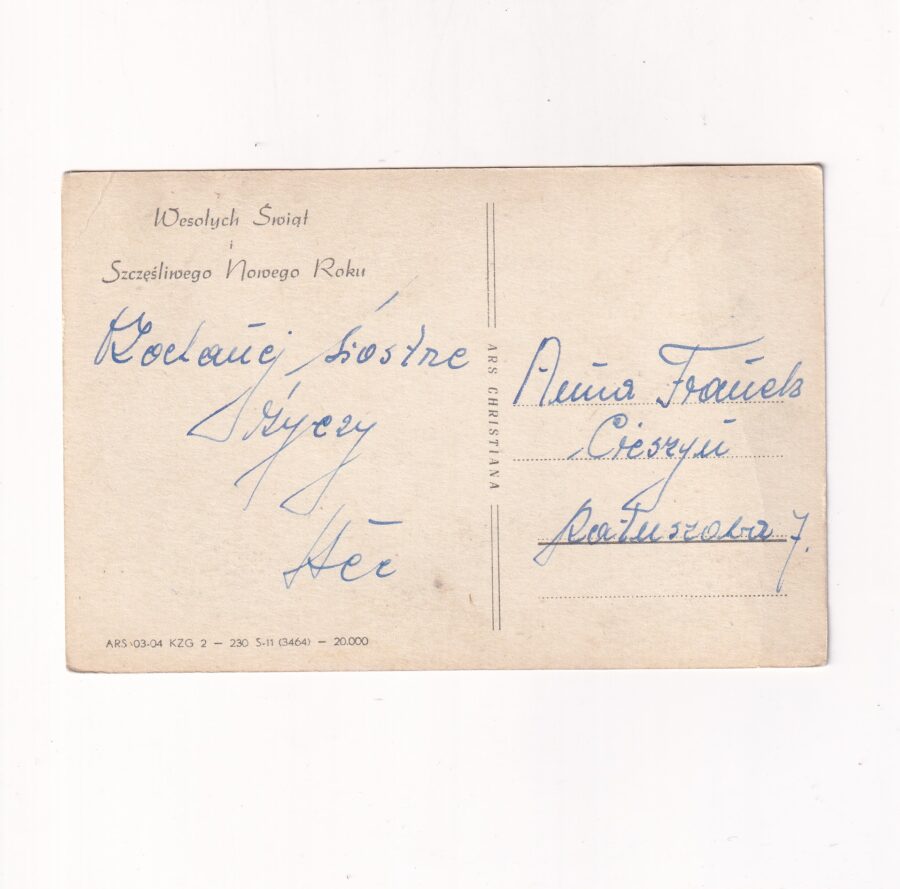 Wesołych Świąt
i
Szczęśliwego Nowego Roku
Kochanej siostrze
życzy
ARS CHRISTIANA
Anna Franek
Cieszyn
Ratuszowa 7.
ARS-03-04 KZG 2 — 230 S-11 (3464) — 20.000